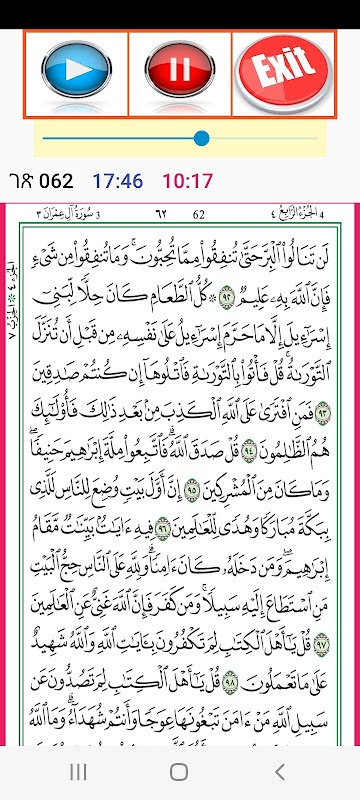 Exit
ገጽ 062 17:46 10:17
3 سُورَةُ آلِ عِمْرَان ٣ ٦٢ 62 الجُزْءُ الرَّابِعُ ٤ 4
لَن تَنَالُوا۟ ٱلْبِرَّ حَتَّىٰ تُنفِقُوا۟ مِمَّا تُحِبُّونَ ۚ وَمَا تُنفِقُوا۟ مِن شَىْءٍ
فَإِنَّ ٱللَّهَ بِهِۦ عَلِيمٌ ٩٢ ۞ كُلُّ ٱلطَّعَامِ كَانَ حِلًّا لِّبَنِىٓ
إِسْرَٰٓءِيلَ إِلَّا مَا حَرَّمَ إِسْرَٰٓءِيلُ عَلَىٰ نَفْسِهِۦ مِن قَبْلِ أَن تُنَزَّلَ
ٱلتَّوْرَىٰةُ ۗ قُلْ فَأْتُوا۟ بِٱلتَّوْرَىٰةِ فَٱتْلُوهَآ إِن كُنتُمْ صَٰدِقِينَ
٩٣ فَمَنِ ٱفْتَرَىٰ عَلَى ٱللَّهِ ٱلْكَذِبَ مِنۢ بَعْدِ ذَٰلِكَ فَأُو۟لَٰٓئِكَ
هُمُ ٱلظَّٰلِمُونَ ٩٤ قُلْ صَدَقَ ٱللَّهُ ۗ فَٱتَّبِعُوا۟ مِلَّةَ إِبْرَٰهِيمَ حَنِيفًا ۖ
وَمَا كَانَ مِنَ ٱلْمُشْرِكِينَ ٩٥ إِنَّ أَوَّلَ بَيْتٍ وُضِعَ لِلنَّاسِ لَلَّذِى
بِبَكَّةَ مُبَارَكًا وَهُدًى لِّلْعَٰلَمِينَ ٩٦ فِيهِ ءَايَٰتٌۢ بَيِّنَٰتٌ مَّقَامُ
إِبْرَٰهِيمَ ۖ وَمَن دَخَلَهُۥ كَانَ ءَامِنًا ۗ وَلِلَّهِ عَلَى ٱلنَّاسِ حِجُّ ٱلْبَيْتِ
مَنِ ٱسْتَطَاعَ إِلَيْهِ سَبِيلًا ۚ وَمَن كَفَرَ فَإِنَّ ٱللَّهَ غَنِىٌّ عَنِ ٱلْعَٰلَمِينَ
٩٧ قُلْ يَٰٓأَهْلَ ٱلْكِتَٰبِ لِمَ تَكْفُرُونَ بِـَٔايَٰتِ ٱللَّهِ وَٱللَّهُ شَهِيدٌ
عَلَىٰ مَا تَعْمَلُونَ ٩٨ قُلْ يَٰٓأَهْلَ ٱلْكِتَٰبِ لِمَ تَصُدُّونَ عَن
سَبِيلِ ٱللَّهِ مَنْ ءَامَنَ تَبْغُونَهَا عِوَجًا وَأَنتُمْ شُهَدَآءُ ۗ وَمَا ٱللَّهُ
الجزء ٤ الحزب ٧